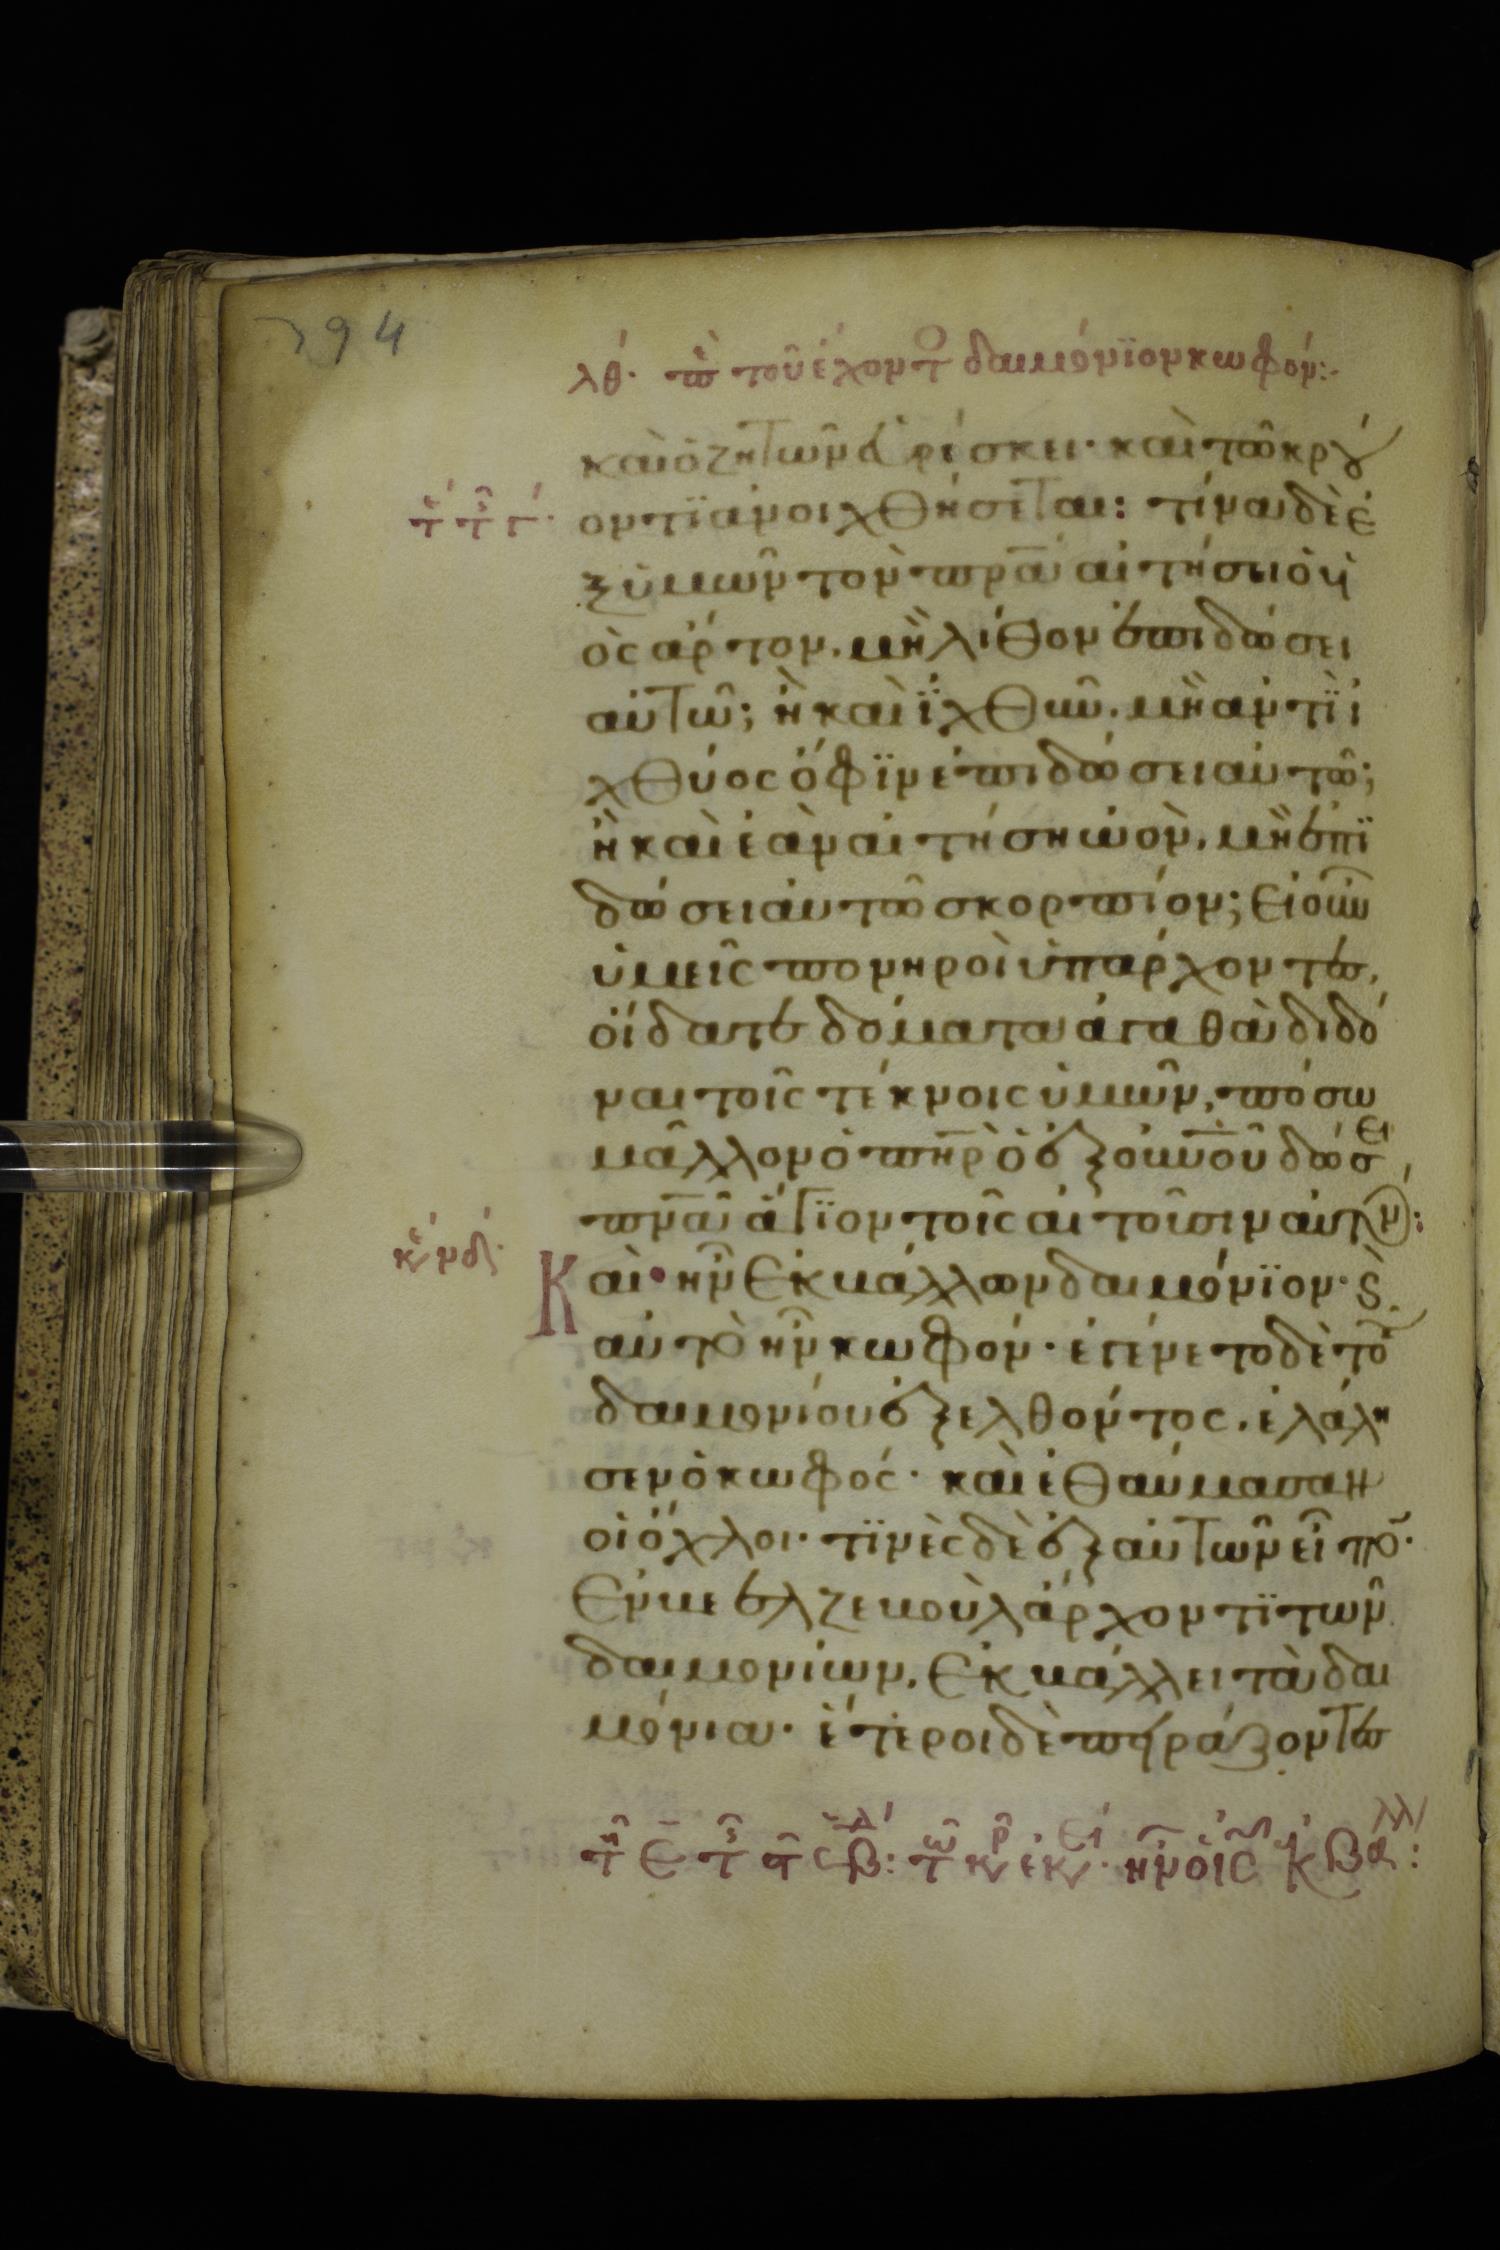 394
λθ· πε τοῦ ἔχοντο δαιμόνϊον κωφόν:
καὶ ὁ ζητῶν εὑρίσκει· καὶ τῶ κρού
οντϊ ἀνοιχθήσεται: τίνα δὲ ἐ
ξ ὑμῶν τὸν πρα αἰτήσει ὁ υἱ
ὸς ἄρτον. μὴ λίθον ἐπιδώσει
αὐτῶ; ἢ καὶ ἰχθὺν. μὴ ἀντὶ ἰ
χθύος ὄφϊν ἐπιδώσει αὐτῶ;
ἢ καὶ ἐὰν αἰτήση ὠὸν. μὴ ἐπϊ
δώσει αὐτῶ σκορπίον; εἰ οὖν
ὑμεῖς πονηροὶ ὑπάρχοντες,
οἴδατε δόματα ἀγαθὰ διδό
ναι τοῖς τέκνοις ὑμῶν, πόσω
μᾶλλον ὁ πηρ ὁ ἐξ οὐνοῦ δώσει
πνα ἅγϊον τοῖς αἰτοῦσιν αὐτόν:
Καὶ· ἦν ἐκβάλλων δαιμόνϊον· ϗ
αὐτὸ ἦν κωφόν· ἐγένετο δὲ τοῦ
δαιμονίου ἐξελθόντος. ἐλάλη
σεν ὁ κωφός· καὶ ἐθαύμασαν
οἱ ὄχλοι· τϊνὲς δὲ ἐξ αὐτῶν εἶπο·
Ἐν βεελζεβοὺλ ἄρχοντϊ τῶν
δαιμονίων. ἐκβάλλει τὰ δαι
μόνια· ἕτεροι δὲ πειράζοντες